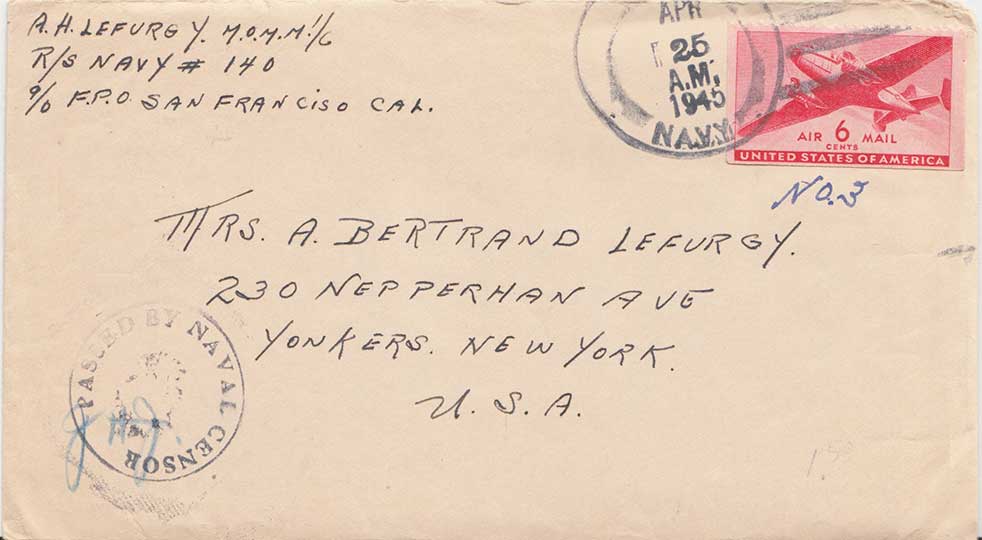 A.H. LEFURGY. M.O.M.M. 1/c
R/S NAVY # 140
c/o F.P.O. SAN FRANCISO CAL.
APR
25
A.M.
1945
NAVY
AIR 6 MAIL
CENTS
UNITED STATES OF AMERICA
NO. 3
MRS. A. BERTRAND LEFURGY.
230 NEPPERHAN AVE
YONKERS. NEW YORK.
U. S. A.
PASSED BY NAVAL CENSOR